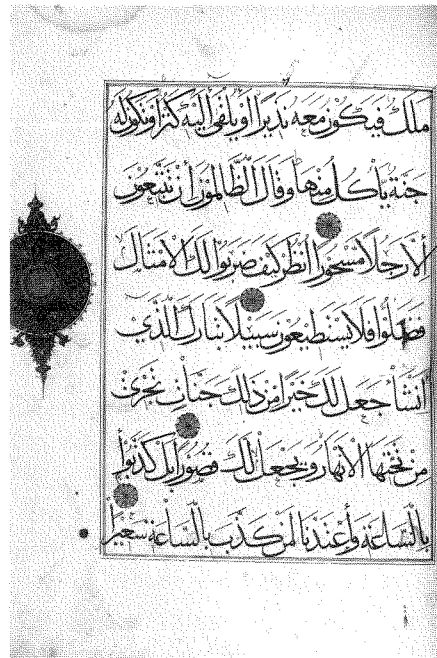 ملك فيكون معه نذيرا أو يلقى إليه كنز أو تكون له
جنة يأكل منها وقال الظالمون إن تتبعون
إلا رجلا مسحورا انظر كيف ضربوا لك الأمثال
فضلوا فلا يستطيعون سبيلا تبارك الذي
إن شاء جعل لك خيرا من ذلك جنات تجري
من تحتها الأنهار ويجعل لك قصورا بل كذبوا
بالساعة وأعتدنا لمن كذب بالساعة سعيرا